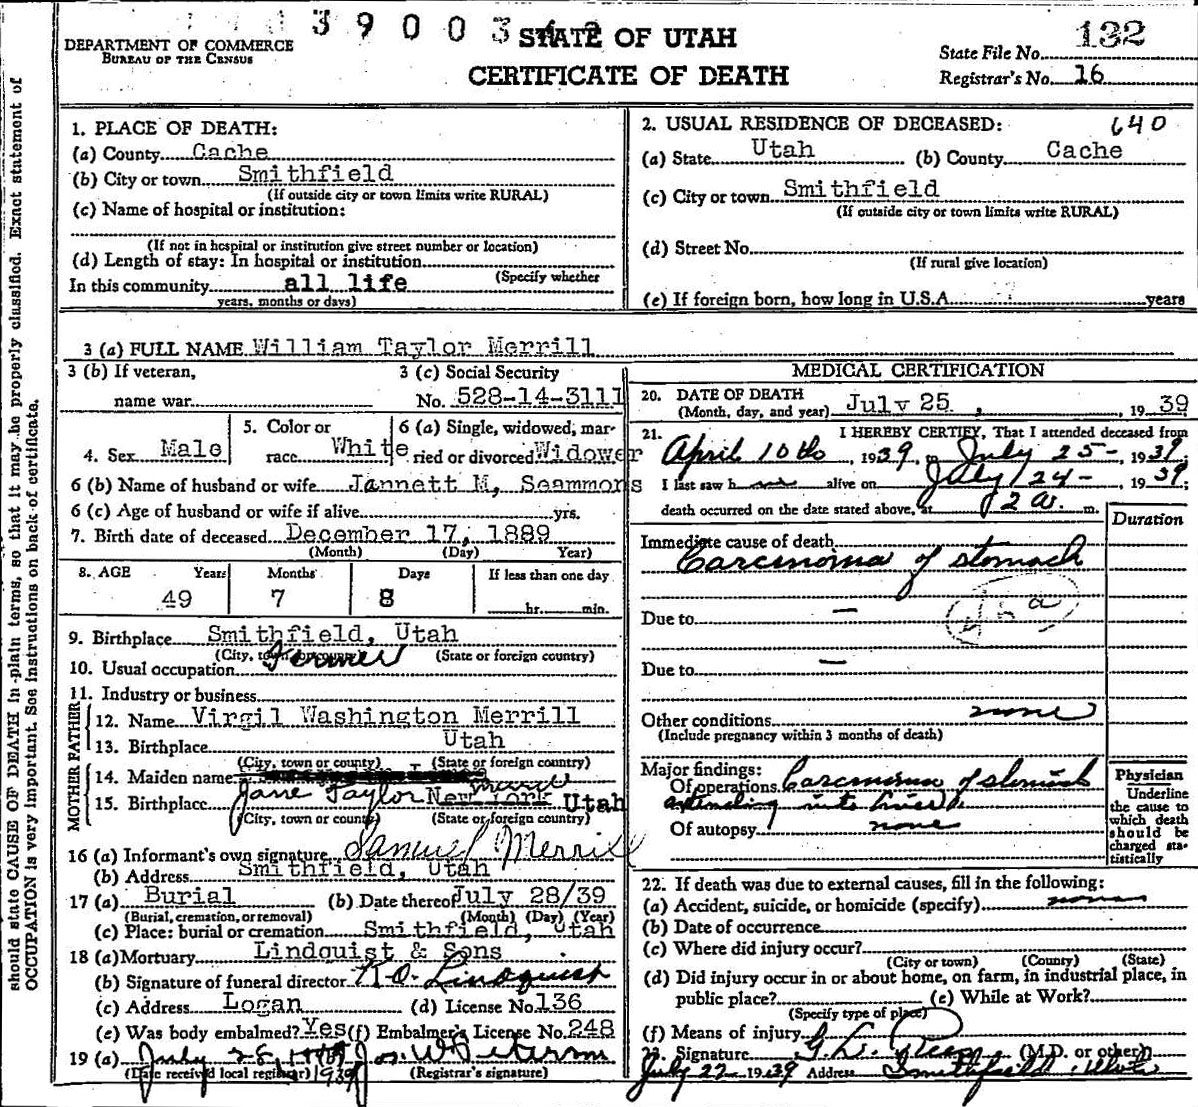 3 9 0 0 3
DEPARTMENT OF COMMERCE
BUREAU OF THE CENSUS
STATE OF UTAH
CERTIFICATE OF DEATH
State File No. 132
Registrar's No. 16
should state CAUSE OF DEATH in plain terms, so that it may be properly classified. Exact statement of
OCCUPATION is very important. See instructions on back of certificate.
1. PLACE OF DEATH:
(a) County Cache
(b) City or town Smithfield
(If outside city or town limits write RURAL)
(c) Name of hospital or institution:
(If not in hospital or institution give street number or location)
(d) Length of stay: In hospital or institution
In this community all life (Specify whether
years, months or days)
2. USUAL RESIDENCE OF DECEASED: 640
(a) State Utah (b) County Cache
(c) City or town Smithfield
(If outside city or town limits write RURAL)
(d) Street No.
(If rural give location)
(e) If foreign born, how long in U.S.A. years
3 (a) FULL NAME William Taylor Merrill
3 (b) If veteran,
name war
3 (c) Social Security
No. 528-14-3111
4. Sex Male
5. Color or
race White
6 (a) Single, widowed, mar-
ried or divorced Widower
6 (b) Name of husband or wife Jannett M, Seammons
6 (c) Age of husband or wife if alive yrs.
7. Birth date of deceased December 17, 1889
(Month) (Day) Year)
8. AGE Years Months Days If less than one day
49 7 8 hr. min.
9. Birthplace Smithfield, Utah
(City, town or county) (State or foreign country)
10. Usual occupation Farmer
11. Industry or business
FATHER
12. Name Virgil Washington Merrill
13. Birthplace Utah
(City, town or county) (State or foreign country)
MOTHER
14. Maiden name
Jane Taylor
15. Birthplace New York Utah
(City, town or county) (State or foreign country)
16 (a) Informant's own signature Samuel Merrill
(b) Address Smithfield, Utah
17 (a) Burial (b) Date thereof July 28/39
(Burial, cremation, or removal) (Month) (Day) (Year)
(c) Place: burial or cremation Smithfield, Utah
18 (a) Mortuary Lindquist & Sons
(b) Signature of funeral director R.O. Lindquist
(c) Address Logan (d) License No. 136
(e) Was body embalmed? Yes (f) Embalmer's License No. 248
19 (a) July 28, 1939 Jos. W Peterson
(Date received local registrar) 1939 (Registrar's signature)
MEDICAL CERTIFICATION
20. DATE OF DEATH
(Month, day, and year) July 25, 1939
21. I HEREBY CERTIFY, That I attended deceased from
April 10th, 1939, to July 25-, 1939;
I last saw h alive on July 24-, 1939;
death occurred on the date stated above, at 2 a. m.
Duration
Immediate cause of death
Carcinoma of stomach
Due to —
Due to —
Other conditions none
(Include pregnancy within 3 months of death)
Major findings:
Of operations Carcinoma of stomach
extending into liver.
Of autopsy none
Physician
Underline
the cause to
which death
should be
charged sta-
tistically
22. If death was due to external causes, fill in the following:
(a) Accident, suicide, or homicide (specify) none
(b) Date of occurrence
(c) Where did injury occur?
(City or town) (County) (State)
(d) Did injury occur in or about home, on farm, in industrial place, in
public place? (e) While at Work?
(Specify type of place)
(f) Means of injury
23. Signature G.L. (M.D. or other)
July 27 1939 Address Smithfield, Utah